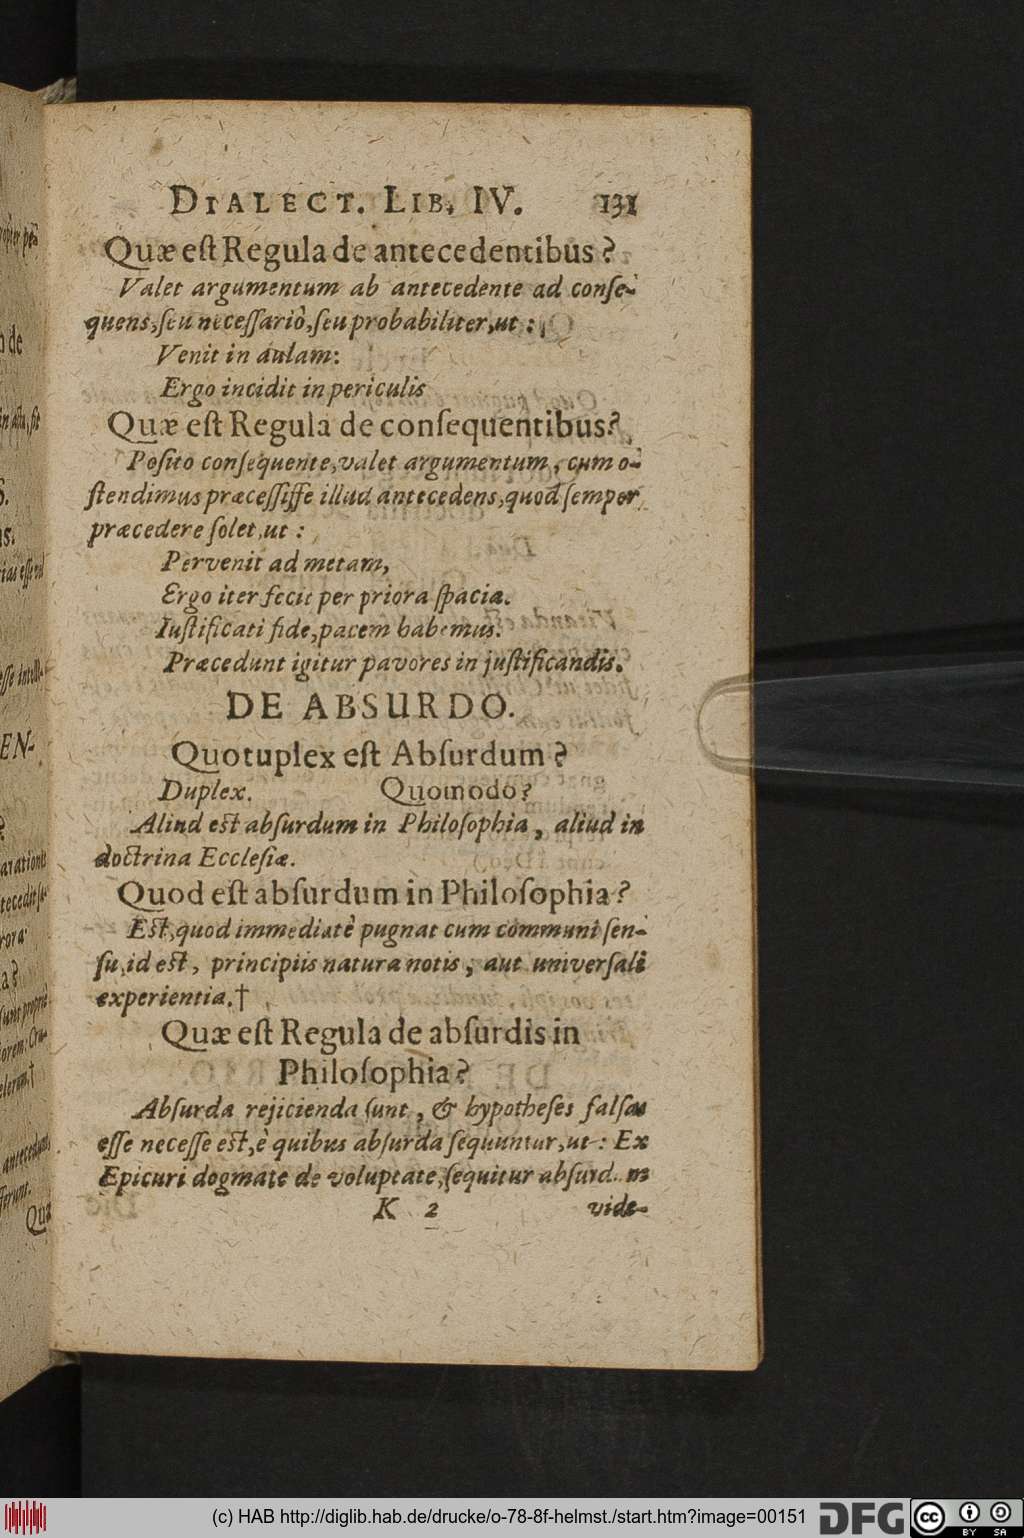 DIALECT. LIB. IV. 131
Quæ eſt Regula de antecedentibus?
Valet argumentum ab antecedente ad conſe-
quens, ſeu neceſſariò, ſeu probabiliter, ut:
Venit in aulam:
Ergo incidit in periculis
Quæ eſt Regula de conſequentibus?
Poſito conſequente, valet argumentum, cum o-
ſtendimus præceſſiſſe illud antecedens, quod ſemper
præcedere ſolet, ut:
Pervenit ad metam,
Ergo iter fecit per priora ſpacia.
Iuſtificati fide, pacem habemus.
Præcedunt igitur pavores in juſtificandis.
DE ABSURDO.
Quotuplex eſt Abſurdum?
Duplex. Quomodo?
Aliud eſt abſurdum in Philoſophia, aliud in
doctrina Eccleſiæ.
Quod eſt abſurdum in Philoſophia?
Eſt, quod immediatè pugnat cum communi ſen-
ſu, id eſt, principiis natura notis, aut univerſali
experientia.†
Quæ eſt Regula de abſurdis in
Philoſophia?
Abſurda rejicienda ſunt, & hypotheſes falſas
eſſe neceſſe eſt, è quibus abſurda ſequuntur, ut: Ex
Epicuri dogmate de voluptate, ſequitur abſurdum
K 2 vide-
(c) HAB http://diglib.hab.de/drucke/o-78-8f-helmst./start.htm?image=00151
DFG
cc BY SA